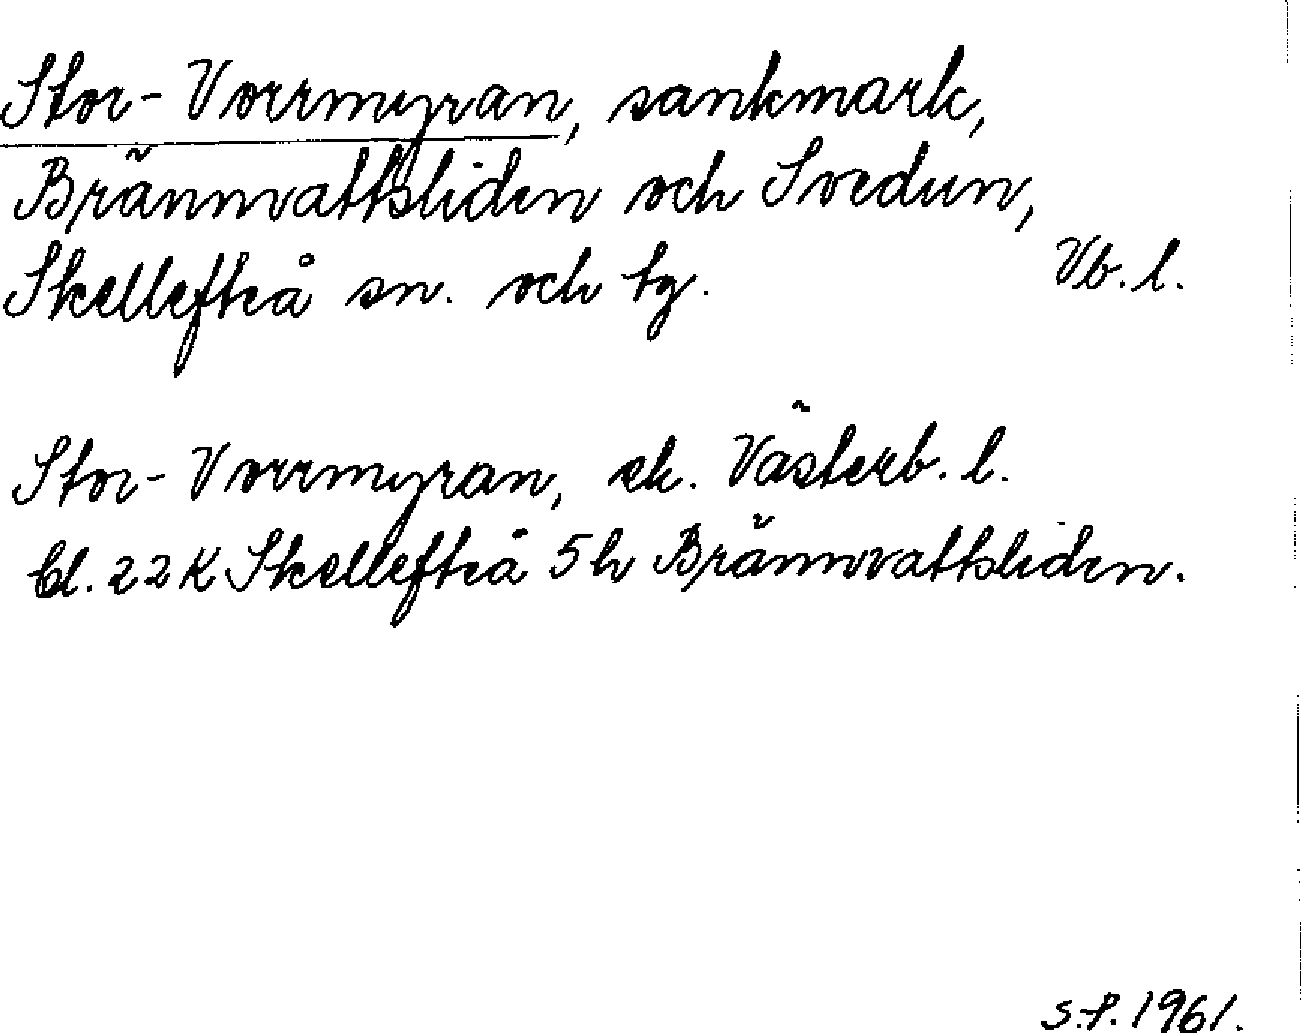 Stor-Vorrmyran, sankmark,
Brännvattsliden och Svedun,
Skellefteå sn. och tg. Vb. l.
Stor-Vorrmyran, ek. Västerb. l.
bl. 22K Skellefteå 5h Brännvattsliden.
S.P. 1961.